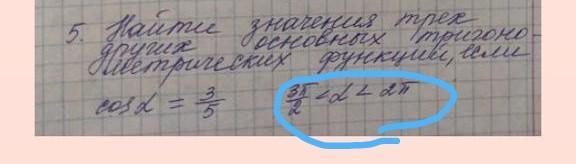 5. Найти значения трех
других основных тригоно-
метрических функций, если
cos α = 3/5 3π/2 < α < 2π